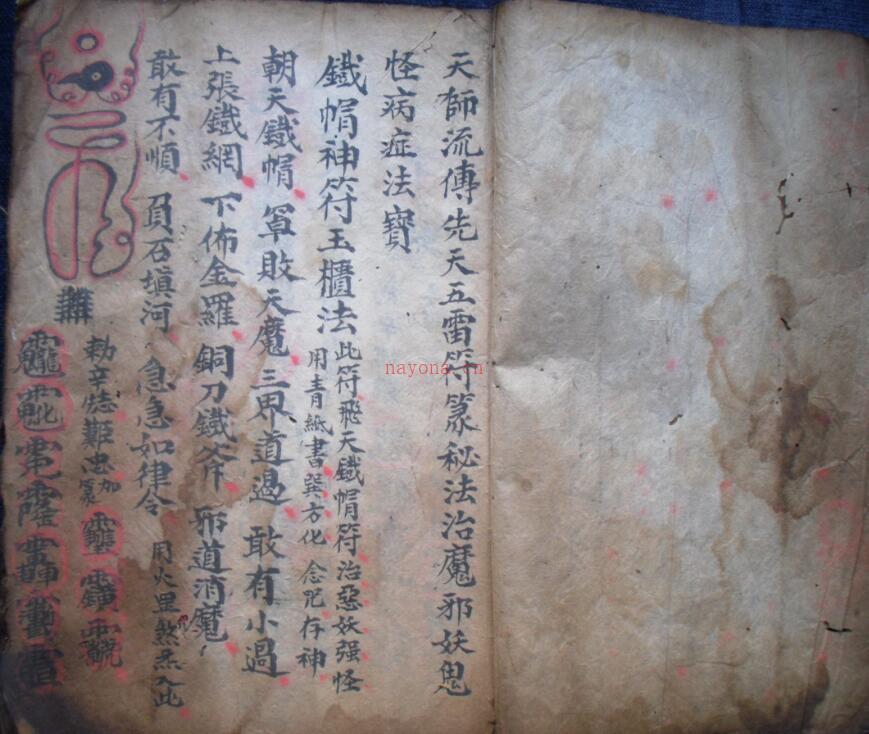 天師流傳先天五雷符篆秘法治魔邪妖鬼
怪病症法寶
鐵帽神符玉櫃法
此符飛天鐵帽符治惡妖强怪
用青紙書巽方化 念咒存神
朝天鐵帽 罩敗天魔 三界道過 敢有小過
上張鐵網 下佈金羅 銅刀鐵斧 邪道消魔
敢有不順 負石填河 急急如律令
用火里煞炁入此
勅辛
nayona.cn